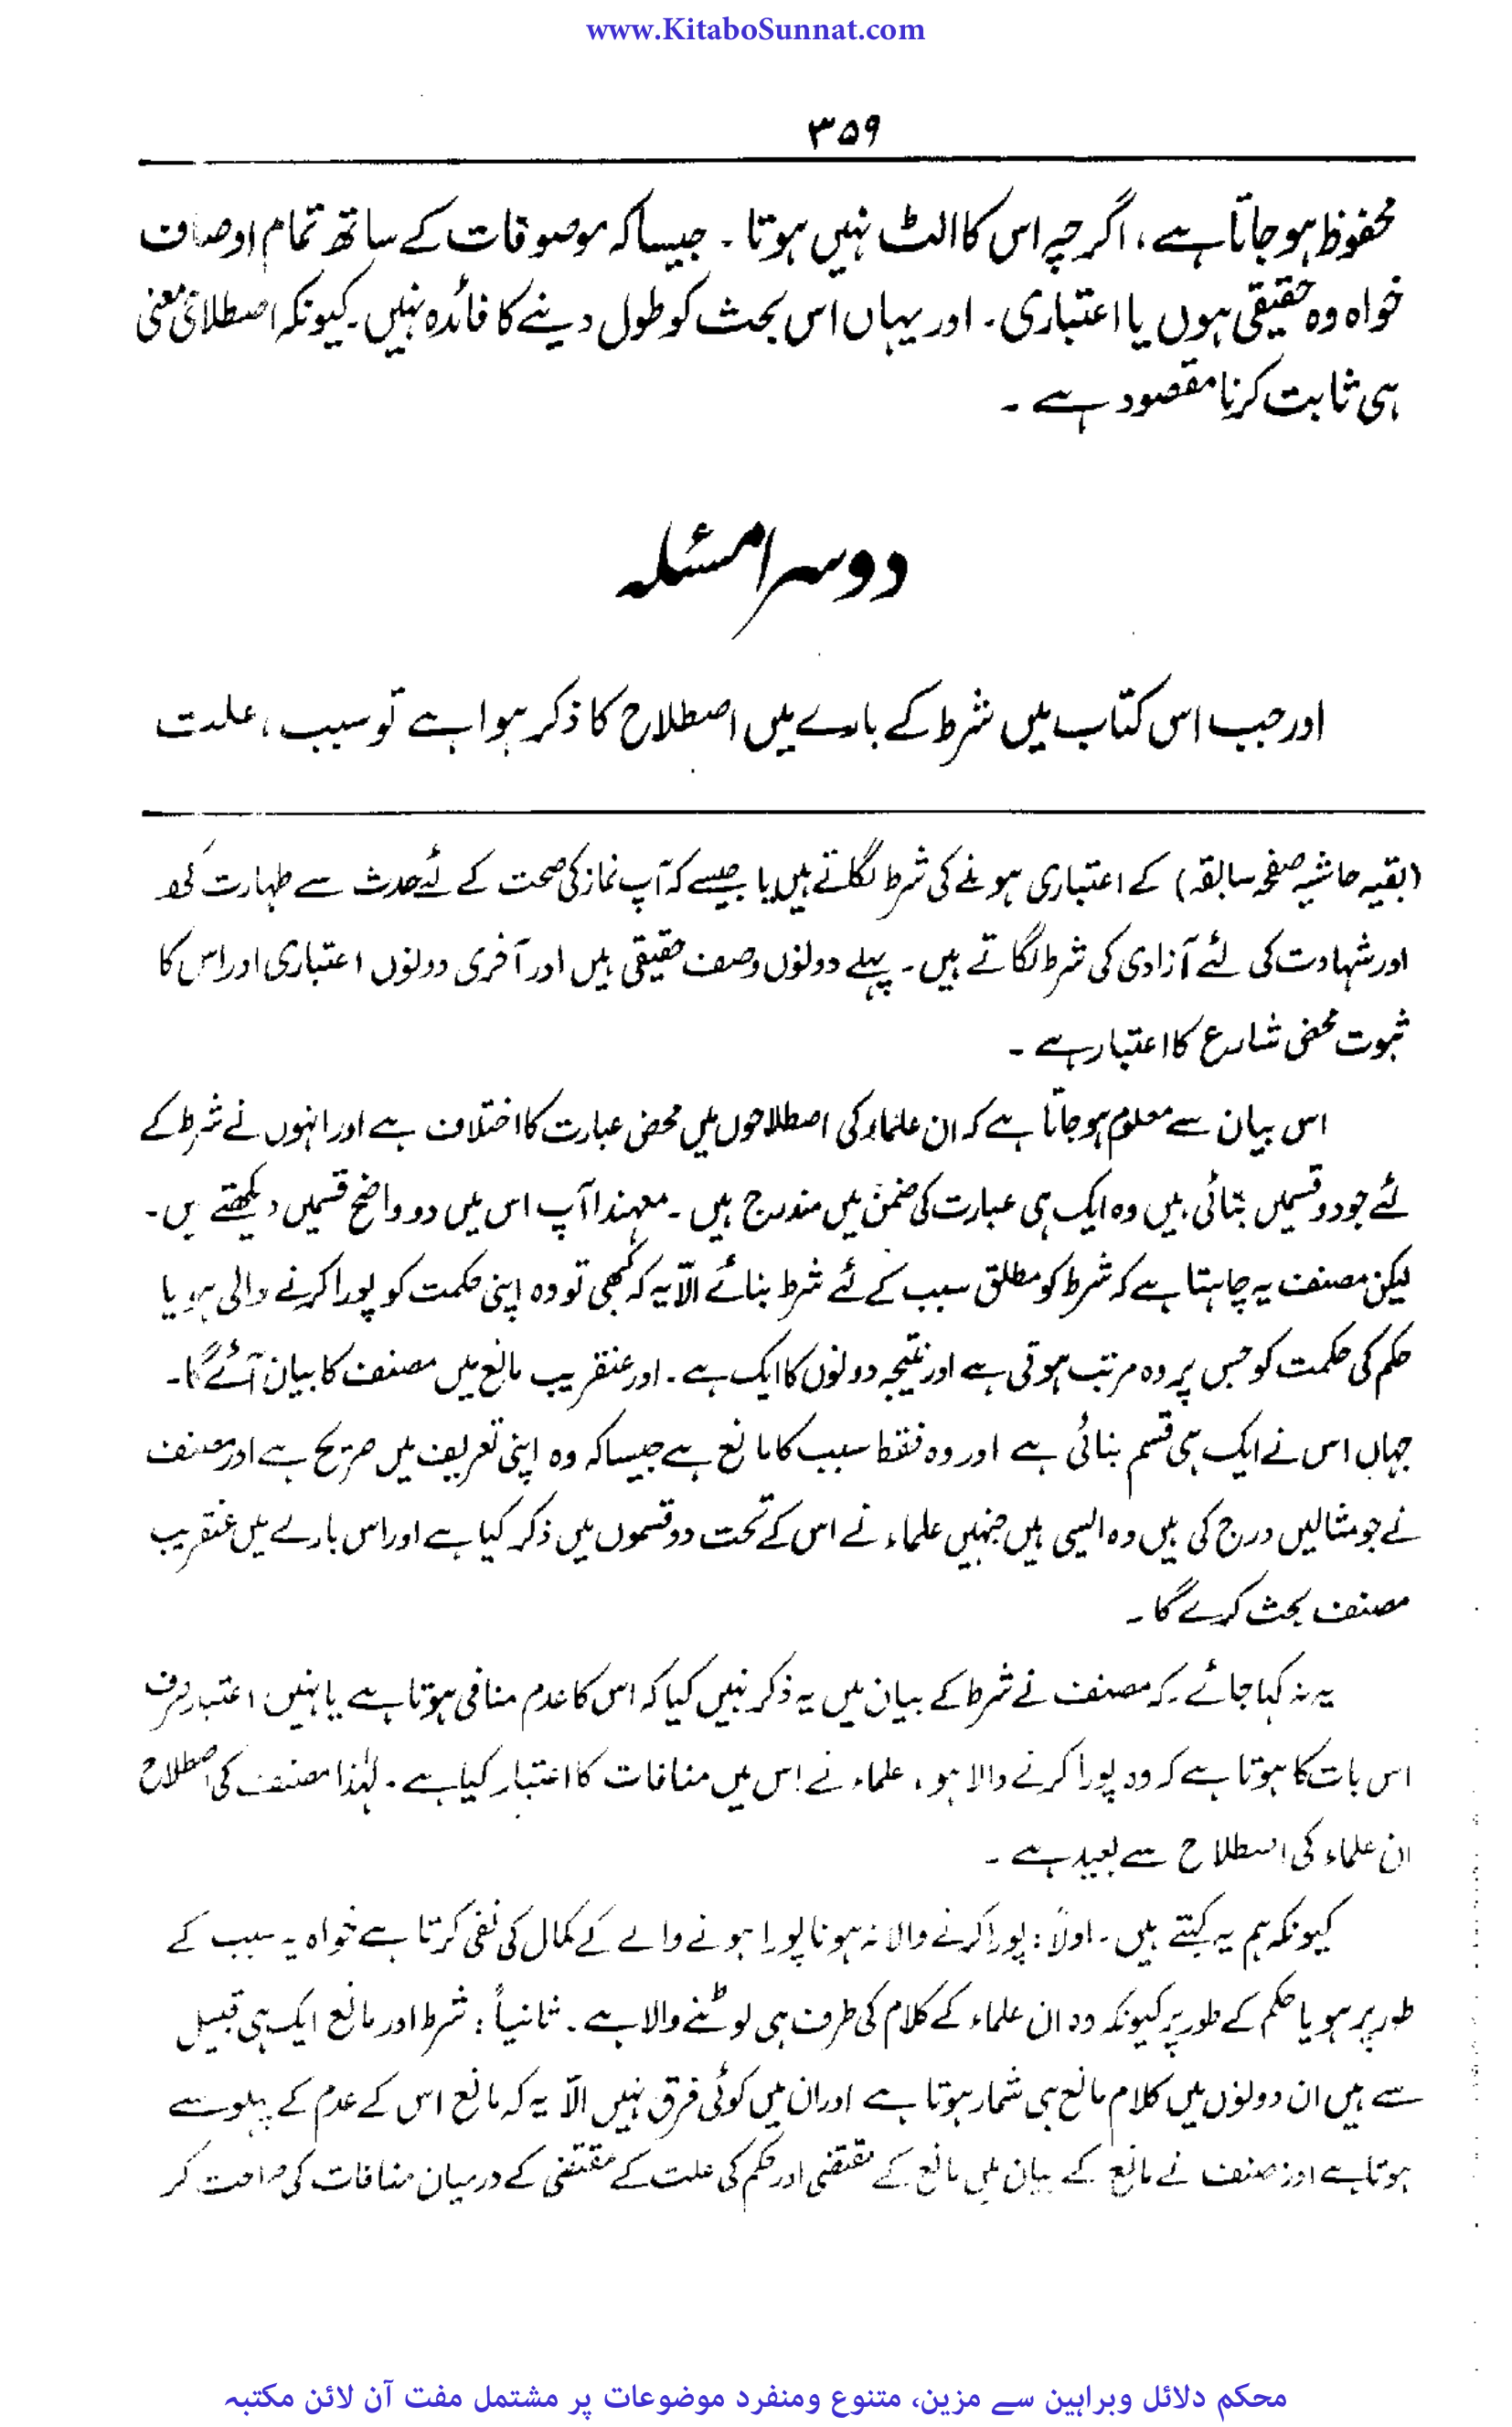 www.KitaboSunnat.com
۳۵۹
محفوظ ہو جاتا ہے، اگرچہ اس کا الٹ نہیں ہوتا ۔ جیسا کہ موصوفات کے ساتھ تمام اوصاف
خواہ وہ حقیقی ہوں یا اعتباری ۔ اور یہاں اس بحث کو طول دینے کا فائدہ نہیں۔ کیونکہ اصطلاحی معنی
ہی ثابت کرنا مقصود ہے ۔
دوسرا مسئلہ
اور جب اس کتاب میں شرط کے بارے میں اصطلاح کا ذکر ہوا ہے تو سبب، علت
(بقیہ حاشیہ صفحہ سابقہ) کے اعتباری ہونے کی شرط لگاتے ہیں یا جیسے کہ آپ نماز کی صحت کے لئے حدث سے طہارت کی
اور شہادت کی لئے آزادی کی شرط لگاتے ہیں ۔ پہلے دونوں وصف حقیقی ہیں اور آخری دونوں اعتباری اور اس کا
ثبوت محض شارع کا اعتبار ہے ۔
اس بیان سے معلوم ہو جاتا ہے کہ ان علماء کی اصطلاحوں میں محض عبارت کا اختلاف ہے اور انہوں نے شرط کے
لئے جو دو قسمیں بتائی ہیں وہ ایک ہی عبارت کی ضمن میں مندرج ہیں ۔ معہندا آپ اس میں دو واضح قسمیں دیکھتے ہیں ۔
لیکن مصنف یہ چاہتا ہے کہ شرط کو مطلق سبب کے لئے شرط بنائے الّا یہ کہ کبھی تو وہ اپنی حکمت کو پورا کرنے والی ہو یا
حکم کی حکمت کو جس پر وہ مرتب ہوتی ہے اور نتیجہ دونوں کا ایک ہے ۔ اور عنقریب مانع میں مصنف کا بیان آئے گا ۔
جہاں اس نے ایک ہی قسم بنائی ہے اور وہ فقط سبب کا مانع ہے جیسا کہ وہ اپنی تعریف میں صریح ہے اور مصنف
نے جو مثالیں درج کی ہیں وہ ایسی ہیں جنہیں علماء نے اس کے تحت دو قسموں میں ذکر کیا ہے اور اس بارے میں عنقریب
مصنف بحث کرے گا ۔
یہ نہ کہا جائے کہ مصنف نے شرط کے بیان میں یہ ذکر نہیں کیا کہ اس کا عدم منافی ہوتا ہے یا نہیں اعتبار صرف
اس بات کا ہوتا ہے کہ وہ پورا کرنے والا ہو، علماء نے اس میں منافات کا اعتبار کیا ہے ۔ لہٰذا مصنف کی اصطلاح
ان علماء کی اصطلاح سے بعید ہے ۔
کیونکہ ہم یہ کہتے ہیں ۔ اولاً: پورا کرنے والا نہ ہونا پورا ہونے والے کے کمال کی نفی کرتا ہے خواہ یہ سبب کے
طور پر ہو یا حکم کے طور پر کیونکہ وہ ان علماء کے کلام کی طرف ہی لوٹنے والا ہے ۔ ثانیاً: شرط اور مانع ایک ہی قبیل
سے ہیں ان دونوں میں کلام مانع ہی شمار ہوتا ہے اور ان میں کوئی فرق نہیں الّا یہ کہ مانع اس کے عدم کے پہلو سے
ہوتا ہے اور مصنف نے مانع کے بیان میں مانع کے مقتضی اور حکم کی علت کے مقتضی کے درمیان منافات کی صراحت کر
محکم دلائل وبراہین سے مزین، متنوع ومنفرد موضوعات پر مشتمل مفت آن لائن مکتبہ